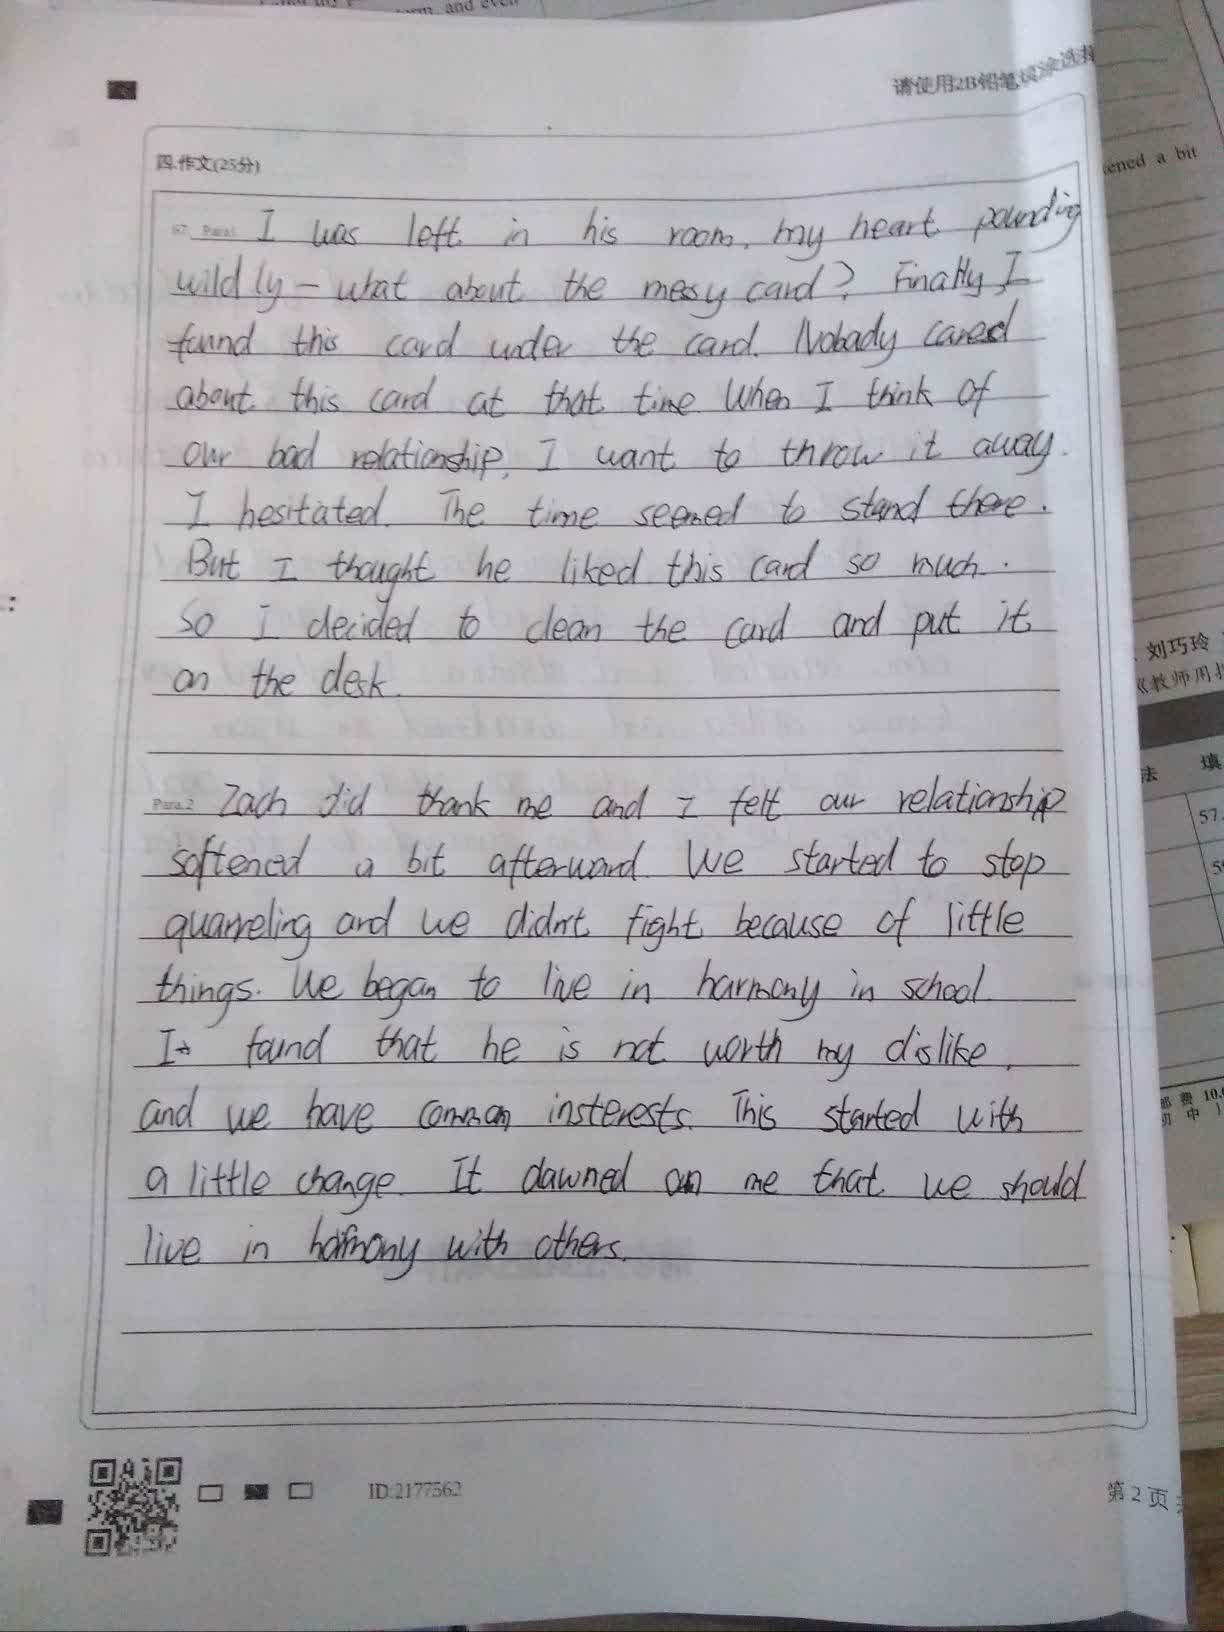 orm, and even
请使用2B铅笔填涂选择
ened a bit
四.作文(25分)
67. Para1 I was left in his room, my heart pounding
wildly — what about the messy card? Finally, I
found this card under the card. Nobady cared
about this card at that time When I think of
our bad relationship, I want to throw it away.
I hesitated. The time seemed to stand there.
But I thought he liked this card so much.
So I decided to clean the card and put it
on the desk.
Para.2 Zach did thank me and I felt our relationship
softened a bit afterward. We started to stop
quarreling and we didn't fight because of little
things. We began to live in harmony in school.
I found that he is not worth my dislike,
and we have common insterests. This started with
a little change. It dawned on me that we should
live in harmony with others.
刘巧玲
《教师用书
法 填
57.
ID:2177562
第 2 页